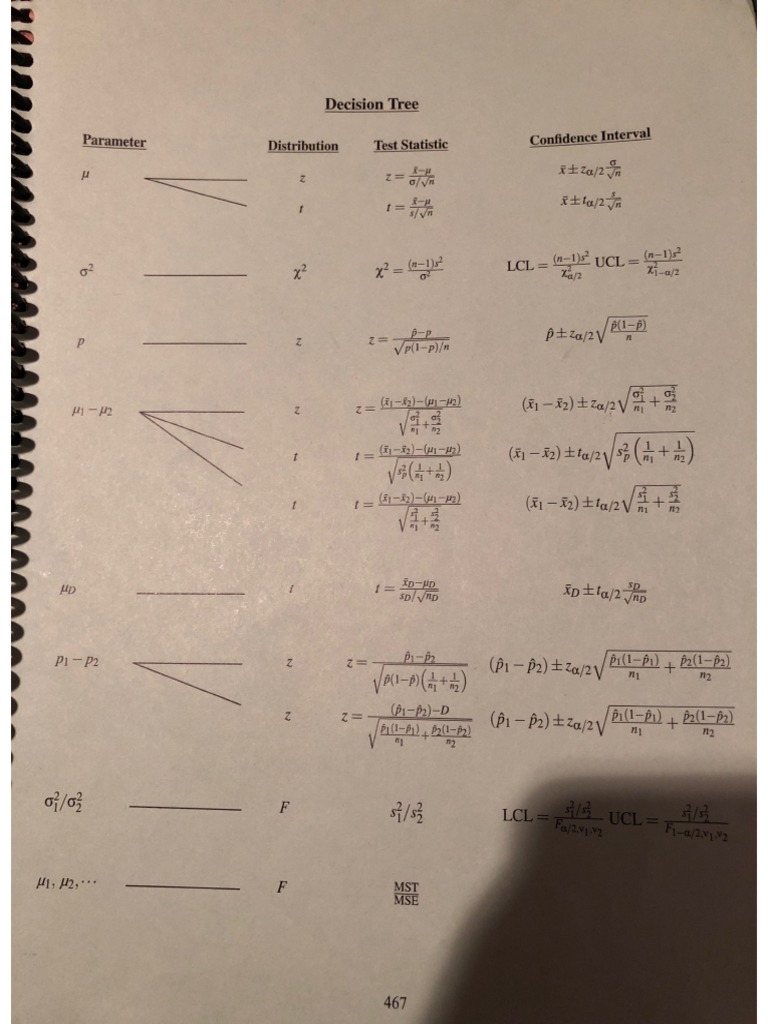 Decision Tree
Parameter Distribution Test Statistic Confidence Interval
μ z z = (x̄−μ)/(σ/√n) x̄ ± z_{α/2} σ/√n
t t = (x̄−μ)/(s/√n) x̄ ± t_{α/2} s/√n
σ² χ² χ² = (n−1)s²/σ² LCL = (n−1)s²/χ²_{α/2} UCL = (n−1)s²/χ²_{1−α/2}
p z z = (p̂−p)/√(p(1−p)/n) p̂ ± z_{α/2} √(p̂(1−p̂)/n)
μ₁ − μ₂ z z = ((x̄₁−x̄₂)−(μ₁−μ₂))/√(σ₁²/n₁ + σ₂²/n₂) (x̄₁ − x̄₂) ± z_{α/2} √(σ₁²/n₁ + σ₂²/n₂)
t t = ((x̄₁−x̄₂)−(μ₁−μ₂))/√(s_p²(1/n₁ + 1/n₂)) (x̄₁ − x̄₂) ± t_{α/2} √(s_p²(1/n₁ + 1/n₂))
t t = ((x̄₁−x̄₂)−(μ₁−μ₂))/√(s₁²/n₁ + s₂²/n₂) (x̄₁ − x̄₂) ± t_{α/2} √(s₁²/n₁ + s₂²/n₂)
μ_D t t = (x̄_D−μ_D)/(s_D/√n_D) x̄_D ± t_{α/2} s_D/√n_D
p₁ − p₂ z z = (p̂₁−p̂₂)/√(p̂(1−p̂)(1/n₁ + 1/n₂)) (p̂₁ − p̂₂) ± z_{α/2} √(p̂₁(1−p̂₁)/n₁ + p̂₂(1−p̂₂)/n₂)
z z = ((p̂₁−p̂₂)−D)/√(p̂₁(1−p̂₁)/n₁ + p̂₂(1−p̂₂)/n₂) (p̂₁ − p̂₂) ± z_{α/2} √(p̂₁(1−p̂₁)/n₁ + p̂₂(1−p̂₂)/n₂)
σ₁²/σ₂² F s₁²/s₂² LCL = (s₁²/s₂²)/F_{α/2,ν₁,ν₂} UCL = (s₁²/s₂²)/F_{1−α/2,ν₁,ν₂}
μ₁, μ₂, ⋯ F MST/MSE
467